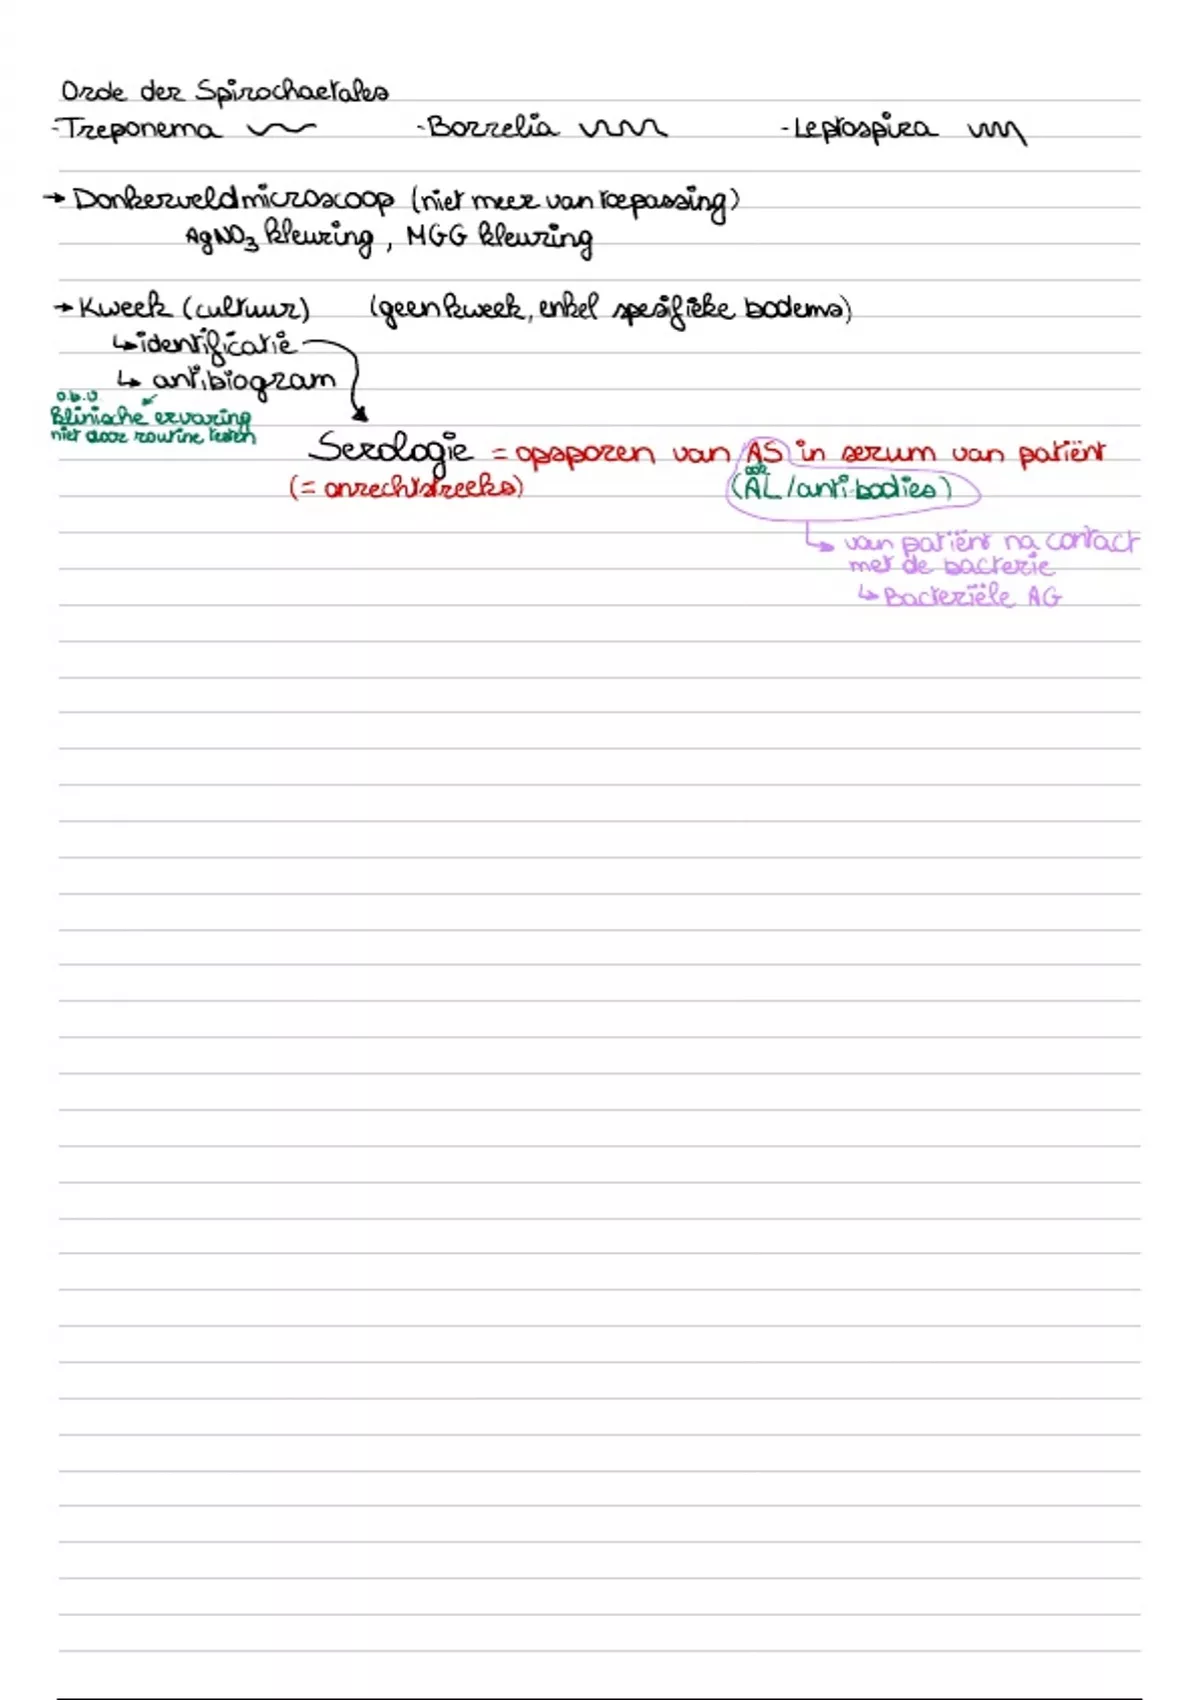 Orde der Spirochaetales
-Treponema -Borrelia -Leptospira
→ Donkerveldmicroscoop (niet meer van toepassing)
AgNO₃ kleuring, MGG kleuring
→ Kweek (cultuur) (geen kweek, enkel spesifieke bodems)
↳ identificatie
↳ antibiogram
o.b.v.
klinische ervaring
niet door routine testen
Serologie = opsporen van AS in serum van patiënt
(= onrechtstreeks) (AL/antibodies)
↳ van patiënt na contact
met de bacterie
↳ Bacteriële AG